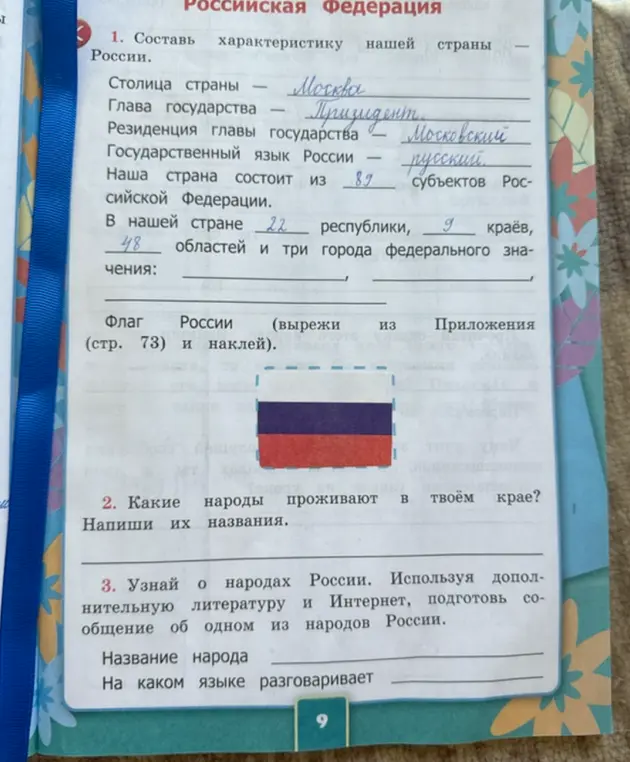 Российская Федерация
1. Составь характеристику нашей страны —
России.
Столица страны — Москва
Глава государства — Призидент.
Резиденция главы государства — Московский
Государственный язык России — русский.
Наша страна состоит из 89 субъектов Рос-
сийской Федерации.
В нашей стране 22 республики, 9 краёв,
48 областей и три города федерального зна-
чения: , ,
Флаг России (вырежи из Приложения
(стр. 73) и наклей).
2. Какие народы проживают в твоём крае?
Напиши их названия.
3. Узнай о народах России. Используя допол-
нительную литературу и Интернет, подготовь со-
общение об одном из народов России.
Название народа
На каком языке разговаривает
9